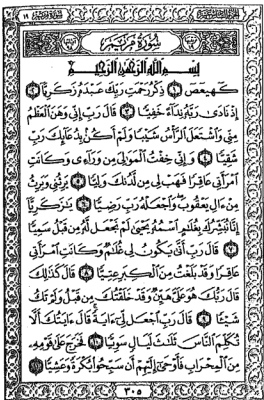 سُورَةُ مَرْيَمَ
بِسْمِ اللَّهِ الرَّحْمَٰنِ الرَّحِيمِ
كٓهيعٓصٓ ١ ذِكْرُ رَحْمَتِ رَبِّكَ عَبْدَهُ زَكَرِيَّا ٢
إِذْ نَادَىٰ رَبَّهُ نِدَاءً خَفِيًّا ٣ قَالَ رَبِّ إِنِّي وَهَنَ الْعَظْمُ
مِنِّي وَاشْتَعَلَ الرَّأْسُ شَيْبًا وَلَمْ أَكُن بِدُعَائِكَ رَبِّ
شَقِيًّا ٤ وَإِنِّي خِفْتُ الْمَوَالِيَ مِن وَرَاءِي وَكَانَتِ
امْرَأَتِي عَاقِرًا فَهَبْ لِي مِن لَّدُنكَ وَلِيًّا ٥ يَرِثُنِي وَيَرِثُ
مِنْ ءَالِ يَعْقُوبَ وَاجْعَلْهُ رَبِّ رَضِيًّا ٦ يَٰزَكَرِيَّا
إِنَّا نُبَشِّرُكَ بِغُلَٰمٍ اسْمُهُ يَحْيَىٰ لَمْ نَجْعَل لَّهُ مِن قَبْلُ سَمِيًّا
٧ قَالَ رَبِّ أَنَّىٰ يَكُونُ لِي غُلَٰمٌ وَكَانَتِ امْرَأَتِي
عَاقِرًا وَقَدْ بَلَغْتُ مِنَ الْكِبَرِ عِتِيًّا ٨ قَالَ كَذَٰلِكَ
قَالَ رَبُّكَ هُوَ عَلَيَّ هَيِّنٌ وَقَدْ خَلَقْتُكَ مِن قَبْلُ وَلَمْ تَكُ
شَيْئًا ٩ قَالَ رَبِّ اجْعَل لِّي ءَايَةً قَالَ ءَايَتُكَ أَلَّا
تُكَلِّمَ النَّاسَ ثَلَٰثَ لَيَالٍ سَوِيًّا ١٠ فَخَرَجَ عَلَىٰ قَوْمِهِ
مِنَ الْمِحْرَابِ فَأَوْحَىٰ إِلَيْهِمْ أَن سَبِّحُوا بُكْرَةً وَعَشِيًّا ١١
٣٠٥